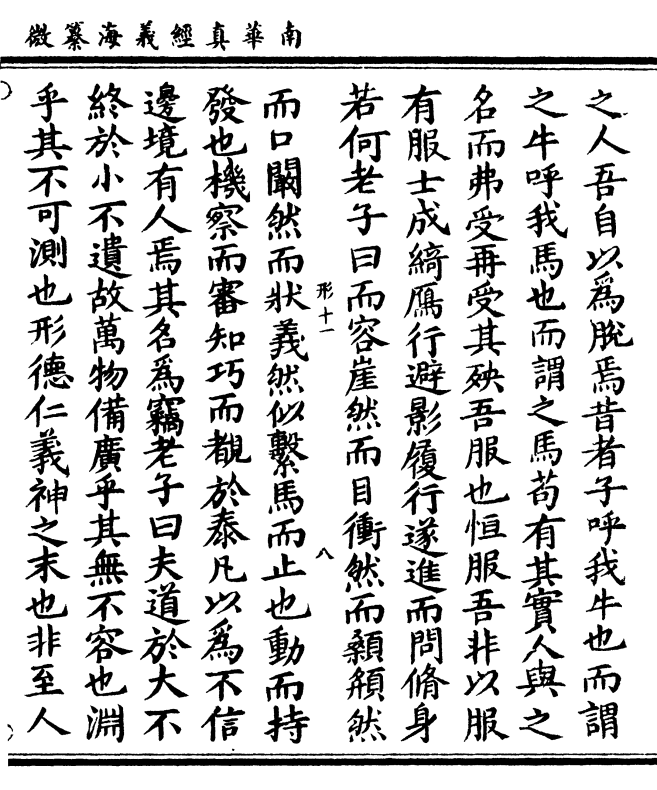 南華真經義海纂微
之人吾自以為脫焉昔者子呼我牛也而謂
之牛呼我馬也而謂之馬苟有其實人與之
名而弗受再受其殃吾服也恒服吾非以服
有服士成綺鴈行避影履行遂進而問脩身
若何老子曰而容崖然而目衝然而顙頯然
形十一
八
而口闞然而狀義然似繫馬而止也動而持
發也機察而審知巧而覩於泰凡以為不信
邊境有人焉其名為竊老子曰夫道於大不
終於小不遺故萬物備廣乎其無不容也淵
乎其不可測也形德仁義神之末也非至人